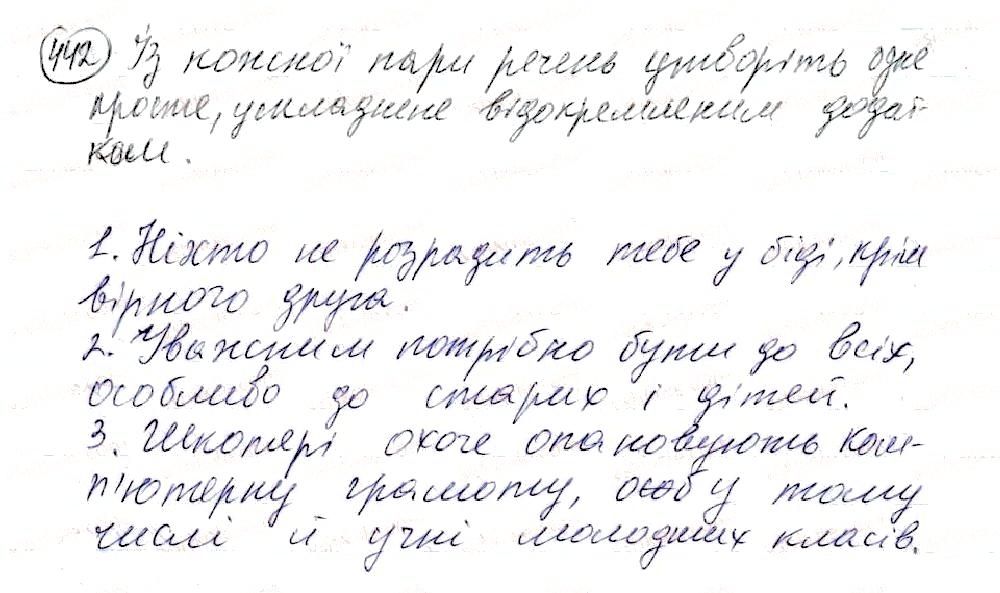 442 Із кожної пари речень утворіть одне
просте, ускладнене відокремленим додат-
ком.
1. Ніхто не розрадить тебе у біді, крім
вірного друга.
2. Уважним потрібно бути до всіх,
особливо до старих і дітей.
3. Школярі охоче опановують ком-
п'ютерну грамоту, у тому
числі й учні молодших класів.